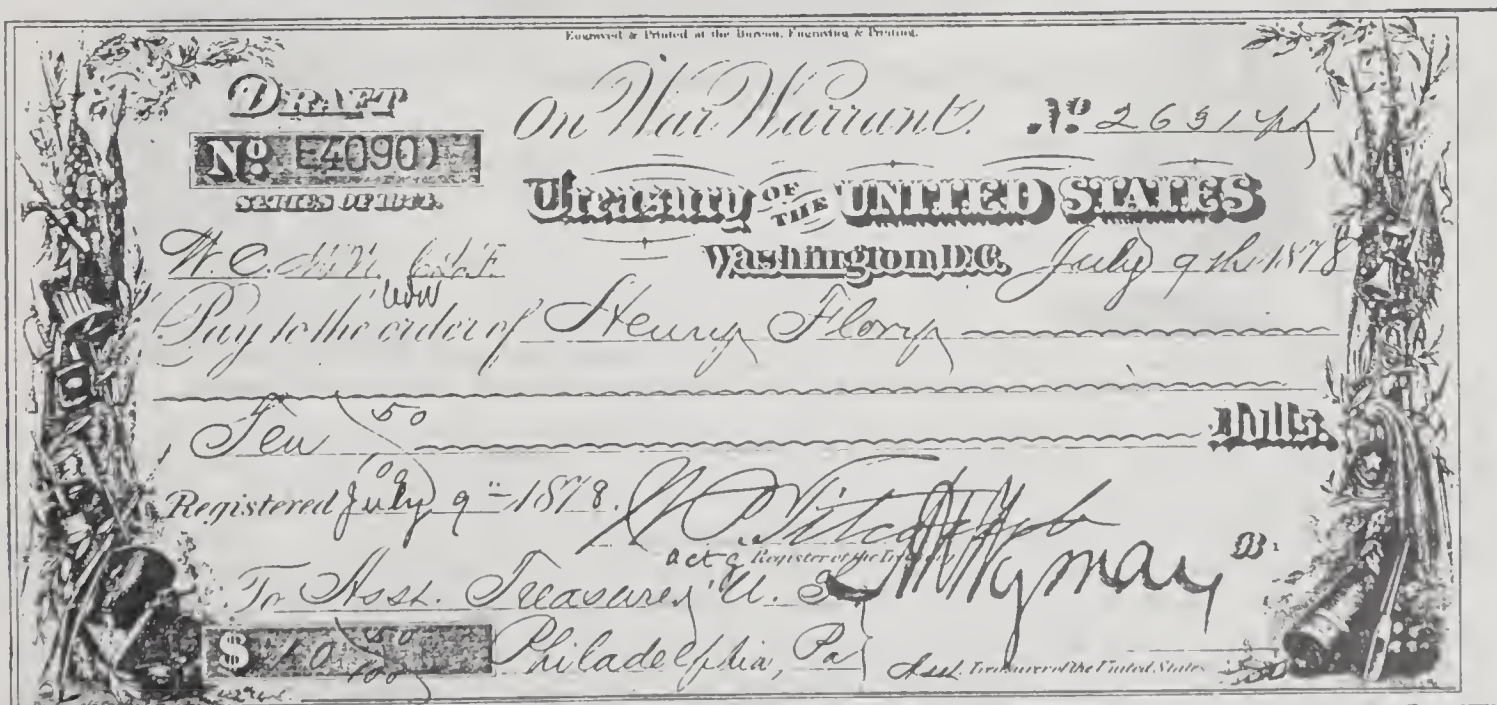 Engraved & Printed at the Bureau, Engraving & Printing.
DRAFT
On War Warrant. No. 2631
No. E40901
SERIES OF 1874.
Treasury OF THE UNITED STATES
Washington D.C. July 9th 1878
W.C.
Pay to the order of Henry Flory
Ten 50/100 Dolls.
Registered July 9" 1878.
actg Register of the Treasury
A U Wyman
To Asst. Treasurer U. S.
$ 10 50/100 Philadelphia, Pa
Asst. Treasurer of the United States